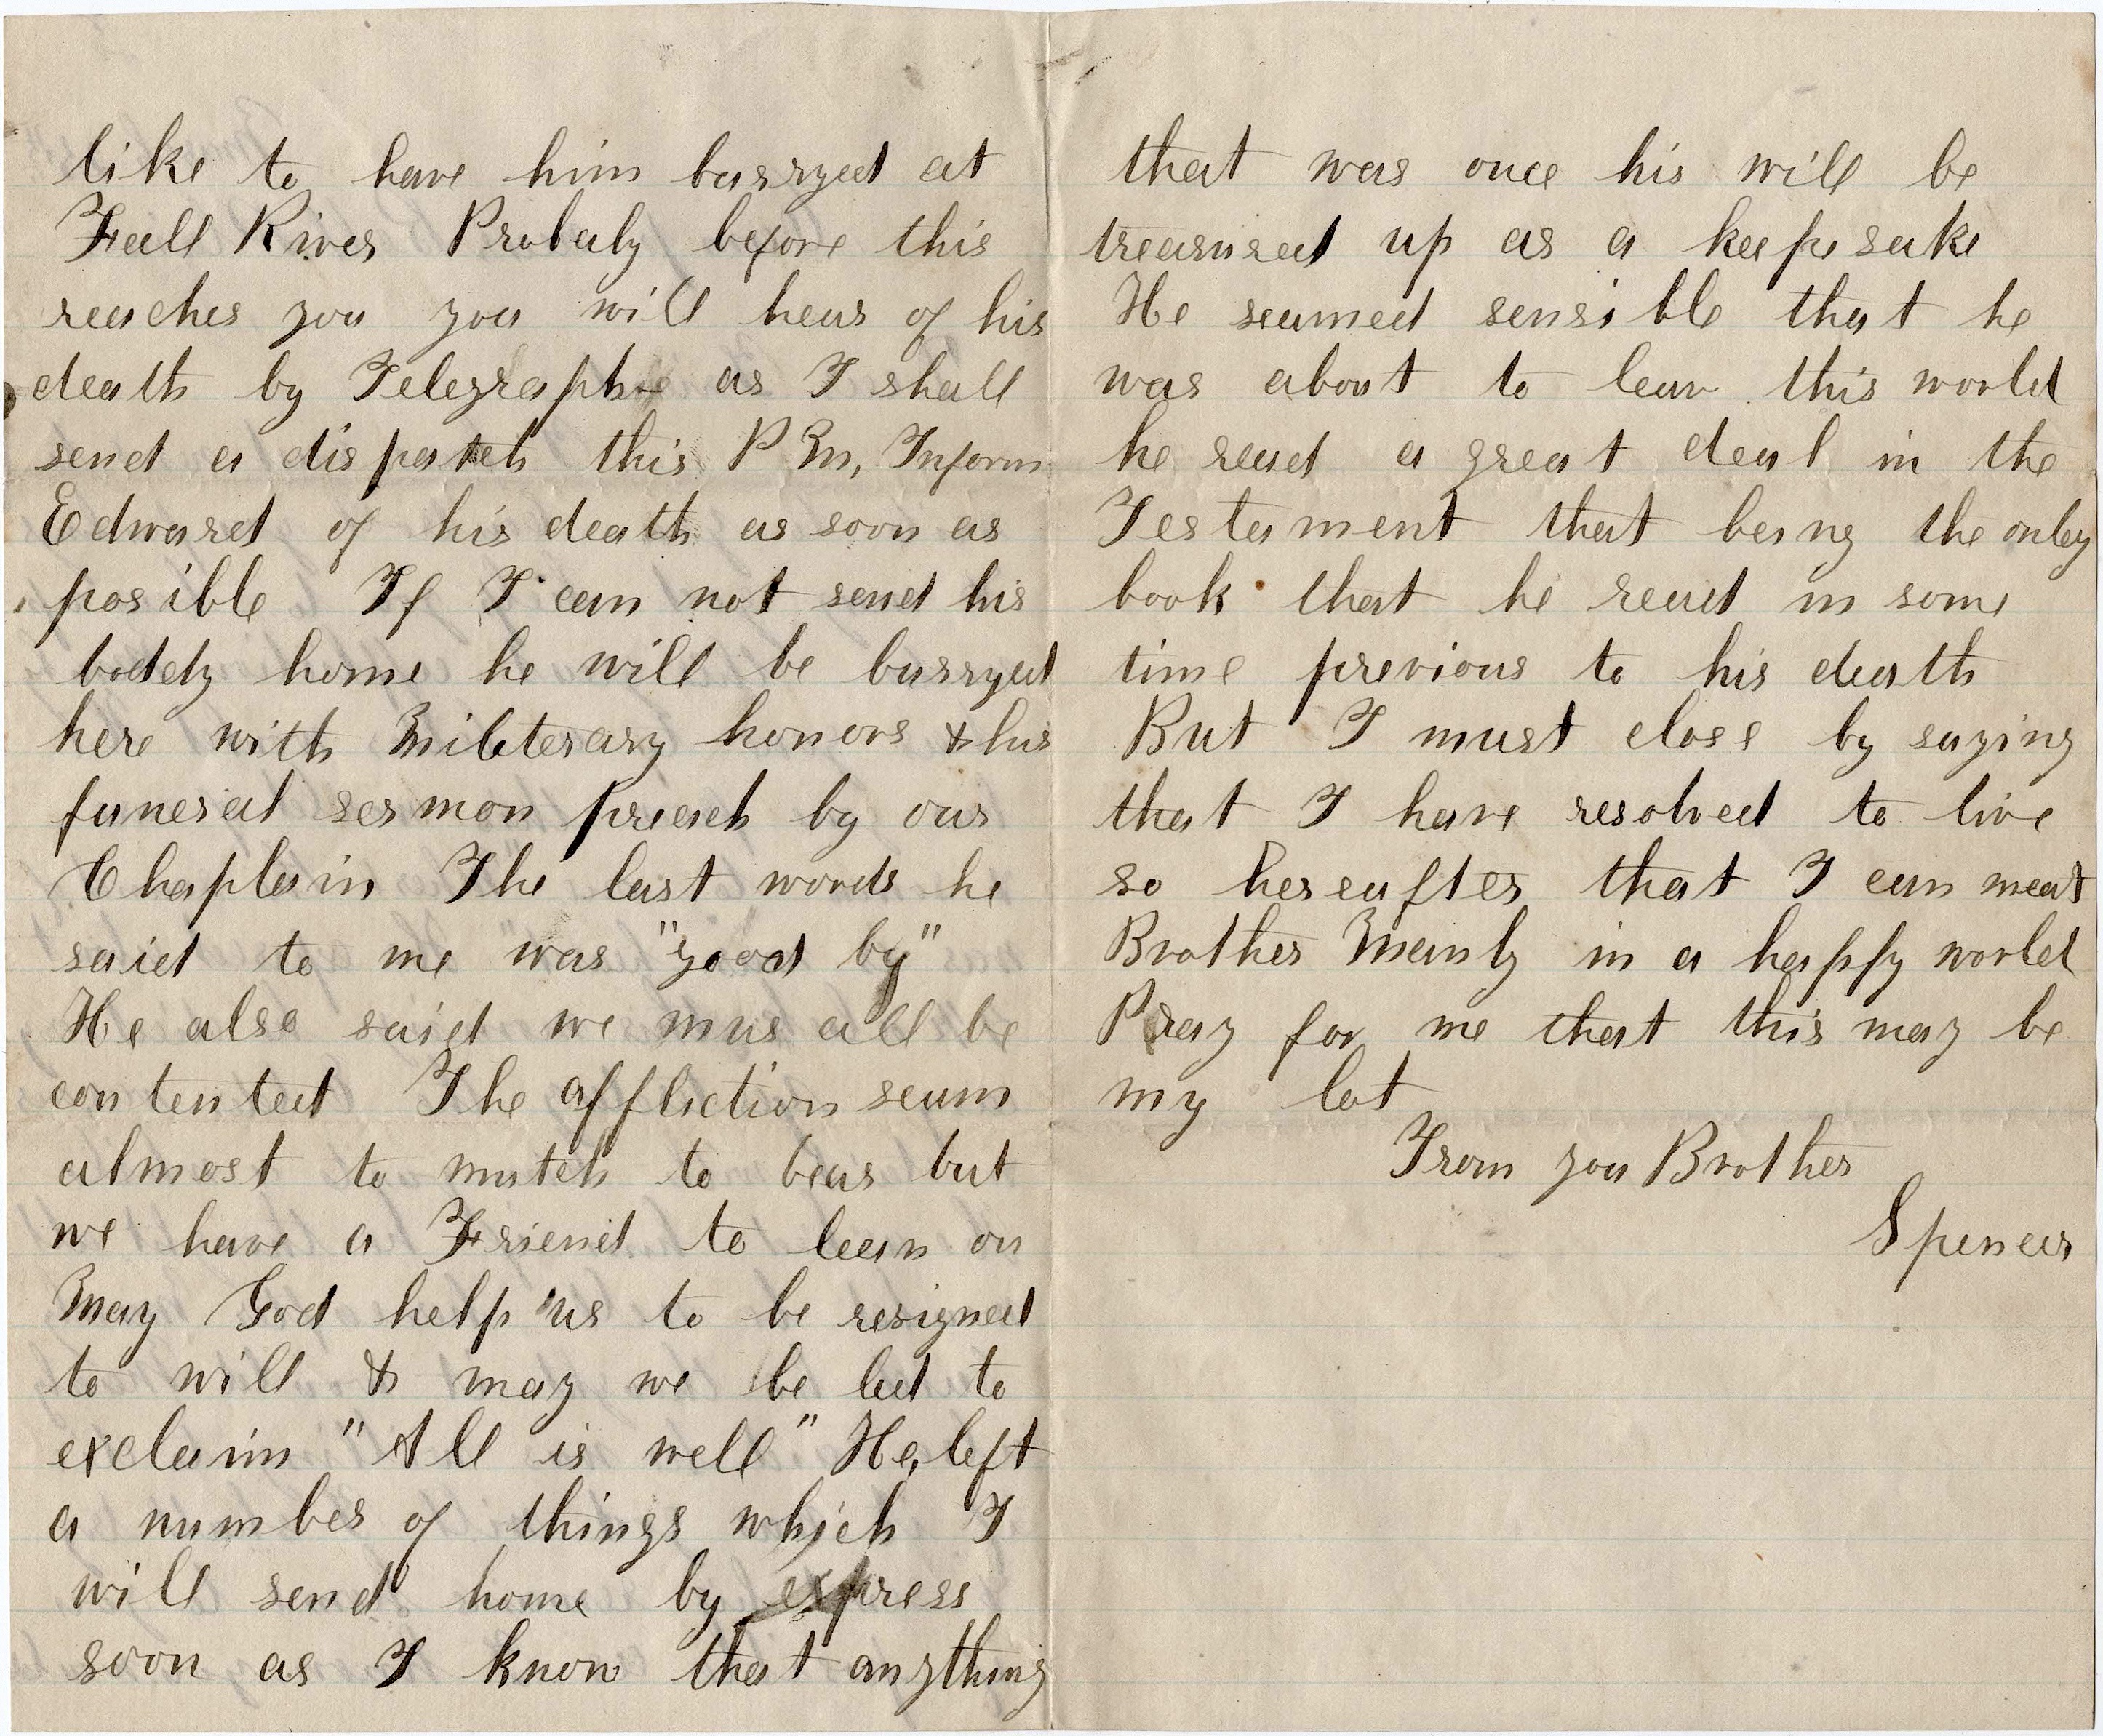 like to have him burryed at
Fall River Probaly before this
reaches you you will hear of his
death by Telegraph as I shall
send a dispatch this P M, Inform
Edward of his death as soon as
posible If I can not send his
boddy home he will be burryed
here with Militerary honors & his
funeral sermon preach by our
Chaplain The last words he
said to me was "good by"
He also said we mus all be
contented The affliction seum
almost to mutch to bear but
we have a Friend to lean on
May God help us to be resigned
to will & may we be led to
exclaim "All is well" He, left
a number of things which I
will send home by express
soon as I know that anything
that was once his will be
treasured up as a keepe sake
He seumed sensible that he
was about to leav this world
he read a great deal in the
Testament that being the only
book that he read in some
time previous to his death
But I must close by saying
that I have resolved to live
so hereafter that I can meat
Brother Manly in a happy world
Pray for me that this may be
my lot
From you Brother
Spencer